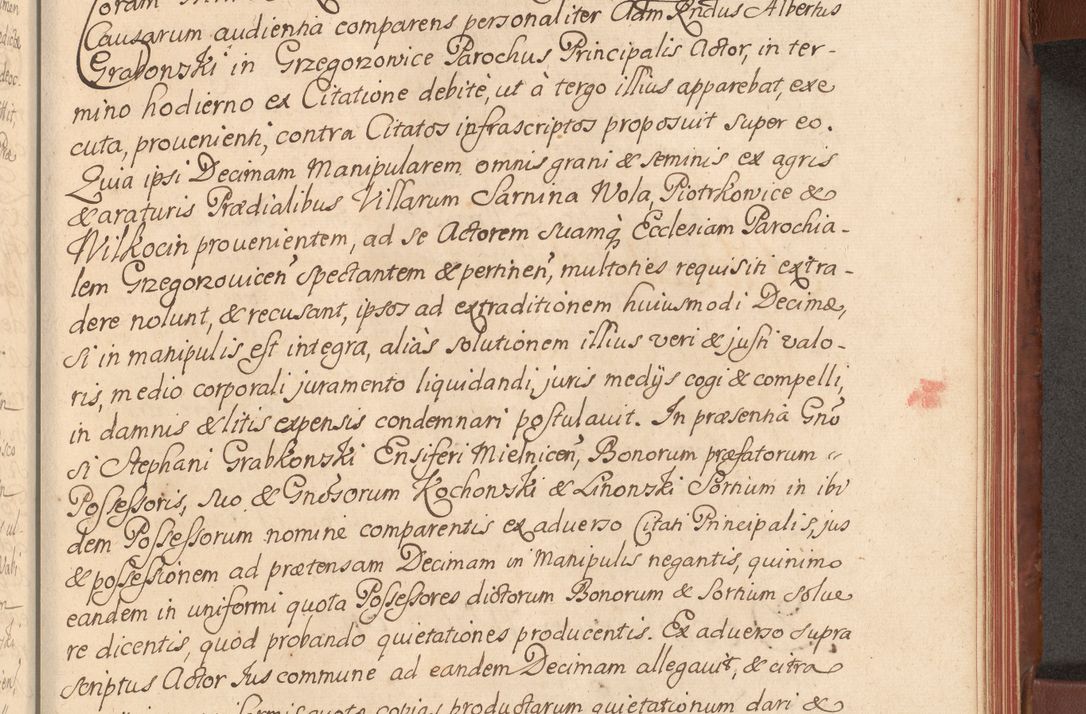 Coram
Causarum audientia comparens personaliter Adm Rndus Albertus
Grabonski in Grzegorzowice Parochus Principalis Actor, in ter-
mino hodierno ex Citatione debitè, ut à tergo illius apparebat, exe
cuta, prouenienti, contra Citatos infrascriptos proposuit super eo.
Quia ipsi Decimam Manipularem omnis grani & seminis ex agris
& araturis Prædialibus Villarum Sarnina Wola, Piotrkowice &
Wilkocin prouenientem, ad se Actorem suamq̀ Ecclesiam Parochia-
lem Grzegorzouicen̄ spectantem & pertinen̄, multoties requisiti extra-
dere nolunt, & recusant, ipsos ad extraditionem huiusmodi Decimæ,
si in manipulis est integra, aliàs solutionem illius veri & justi valo-
ris, medio corporali juramento liquidandi, juris medijs cogi & compelli,
in damnis & litis expensis condemnari postulauit. In præsentia Gnō
si Stephani Grabkonski Ensiferi Mielnicen̄, Bonorum præfatorum "
Possessoris, suo & Gnōsorum Kochonski & Linonski Sortium in ibi
dem Possessorum nomine comparentis ex aduerso Citati Principalis, jus
& possessionem ad prætensam Decimam in Manipulis negantis, quinimo
eandem in uniformi quota Possessores dictorum Bonorum & Sortium solue
re dicentis, quod probando quietationes producentis. Ex aduerso supra
scriptus Actor Jus commune ad eandem Decimam allegauit, & citra
quota copias productarum quietationum dari &